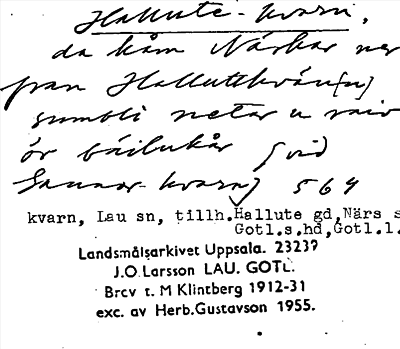 Hallute-kvarn,
da kåm Närkar ner
fran Halluttkvän[n]
sumbli netar u
ör båilukår [vid
Gannor-kvarn] 564
kvarn, Lau sn, tillh. Hallute gd, Närs s
Gotl.s.hd, Gotl.l.
Landsmålsarkivet Uppsala. 23237
J.O. Larsson LAU. GOTL.
Brev t. M Klintberg 1912-31
exc. av Herb. Gustavson 1955.